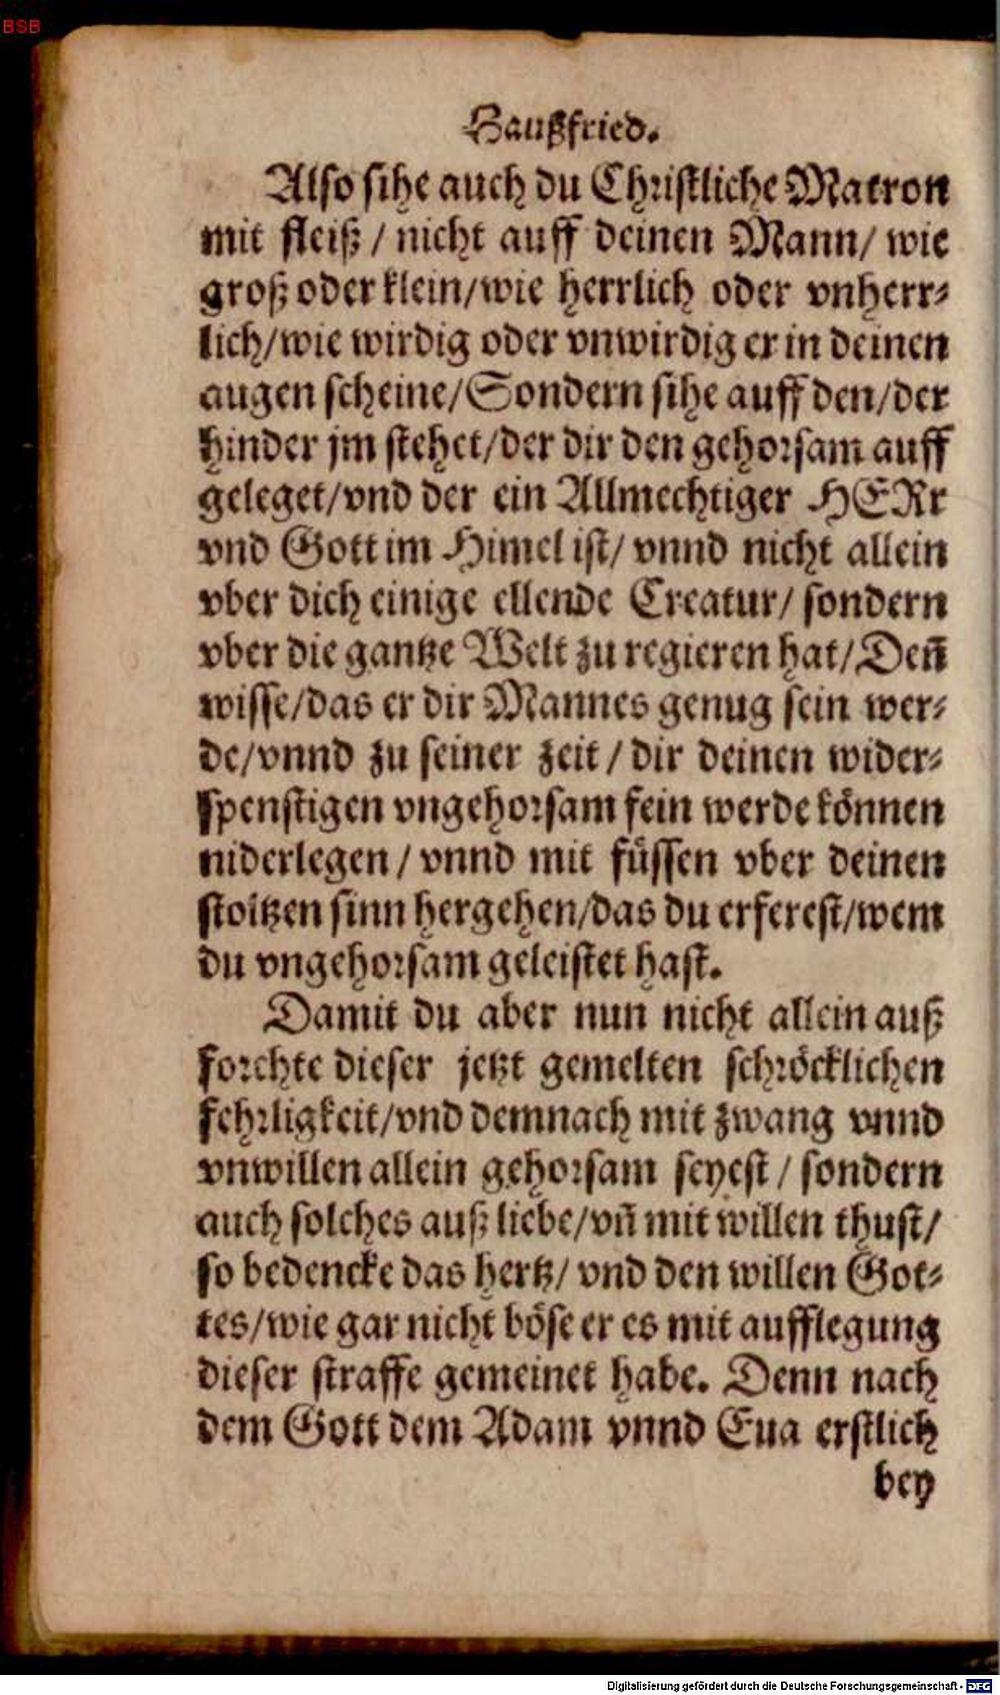 BSB
Haußfried.
Also sihe auch du Christliche Matron
mit fleiß / nicht auff deinen Mann / wie
groß oder klein / wie herrlich oder vnherr⸗
lich / wie wirdig oder vnwirdig er in deinen
augen scheine / Sondern sihe auff den / der
hinder jm stehet / der dir den gehorsam auff
geleget / vnd der ein Allmechtiger HERr
vnd Gott im Himel ist / vnnd nicht allein
vber dich einige ellende Creatur / sondern
vber die gantze Welt zu regieren hat / Deñ
wisse / das er dir Mannes genug sein wer⸗
de / vnnd zu seiner zeit / dir deinen wider⸗
spenstigen vngehorsam fein werde können
niderlegen / vnnd mit füssen vber deinen
stoltzen sinn hergehen / das du erferest / wem
du vngehorsam geleistet hast.
Damit du aber nun nicht allein auß
forchte dieser jetzt gemelten schröcklichen
fehrligkeit / vnd demnach mit zwang vnnd
vnwillen allein gehorsam seyest / sondern
auch solches auß liebe / vñ mit willen thust /
so bedencke das hertz / vnd den willen Got⸗
tes / wie gar nicht böse er es mit aufflegung
dieser straffe gemeinet habe. Denn nach
dem Gott dem Adam vnnd Eua erstlich
bey
Digitalisierung gefördert durch die Deutsche Forschungsgemeinschaft - DFG